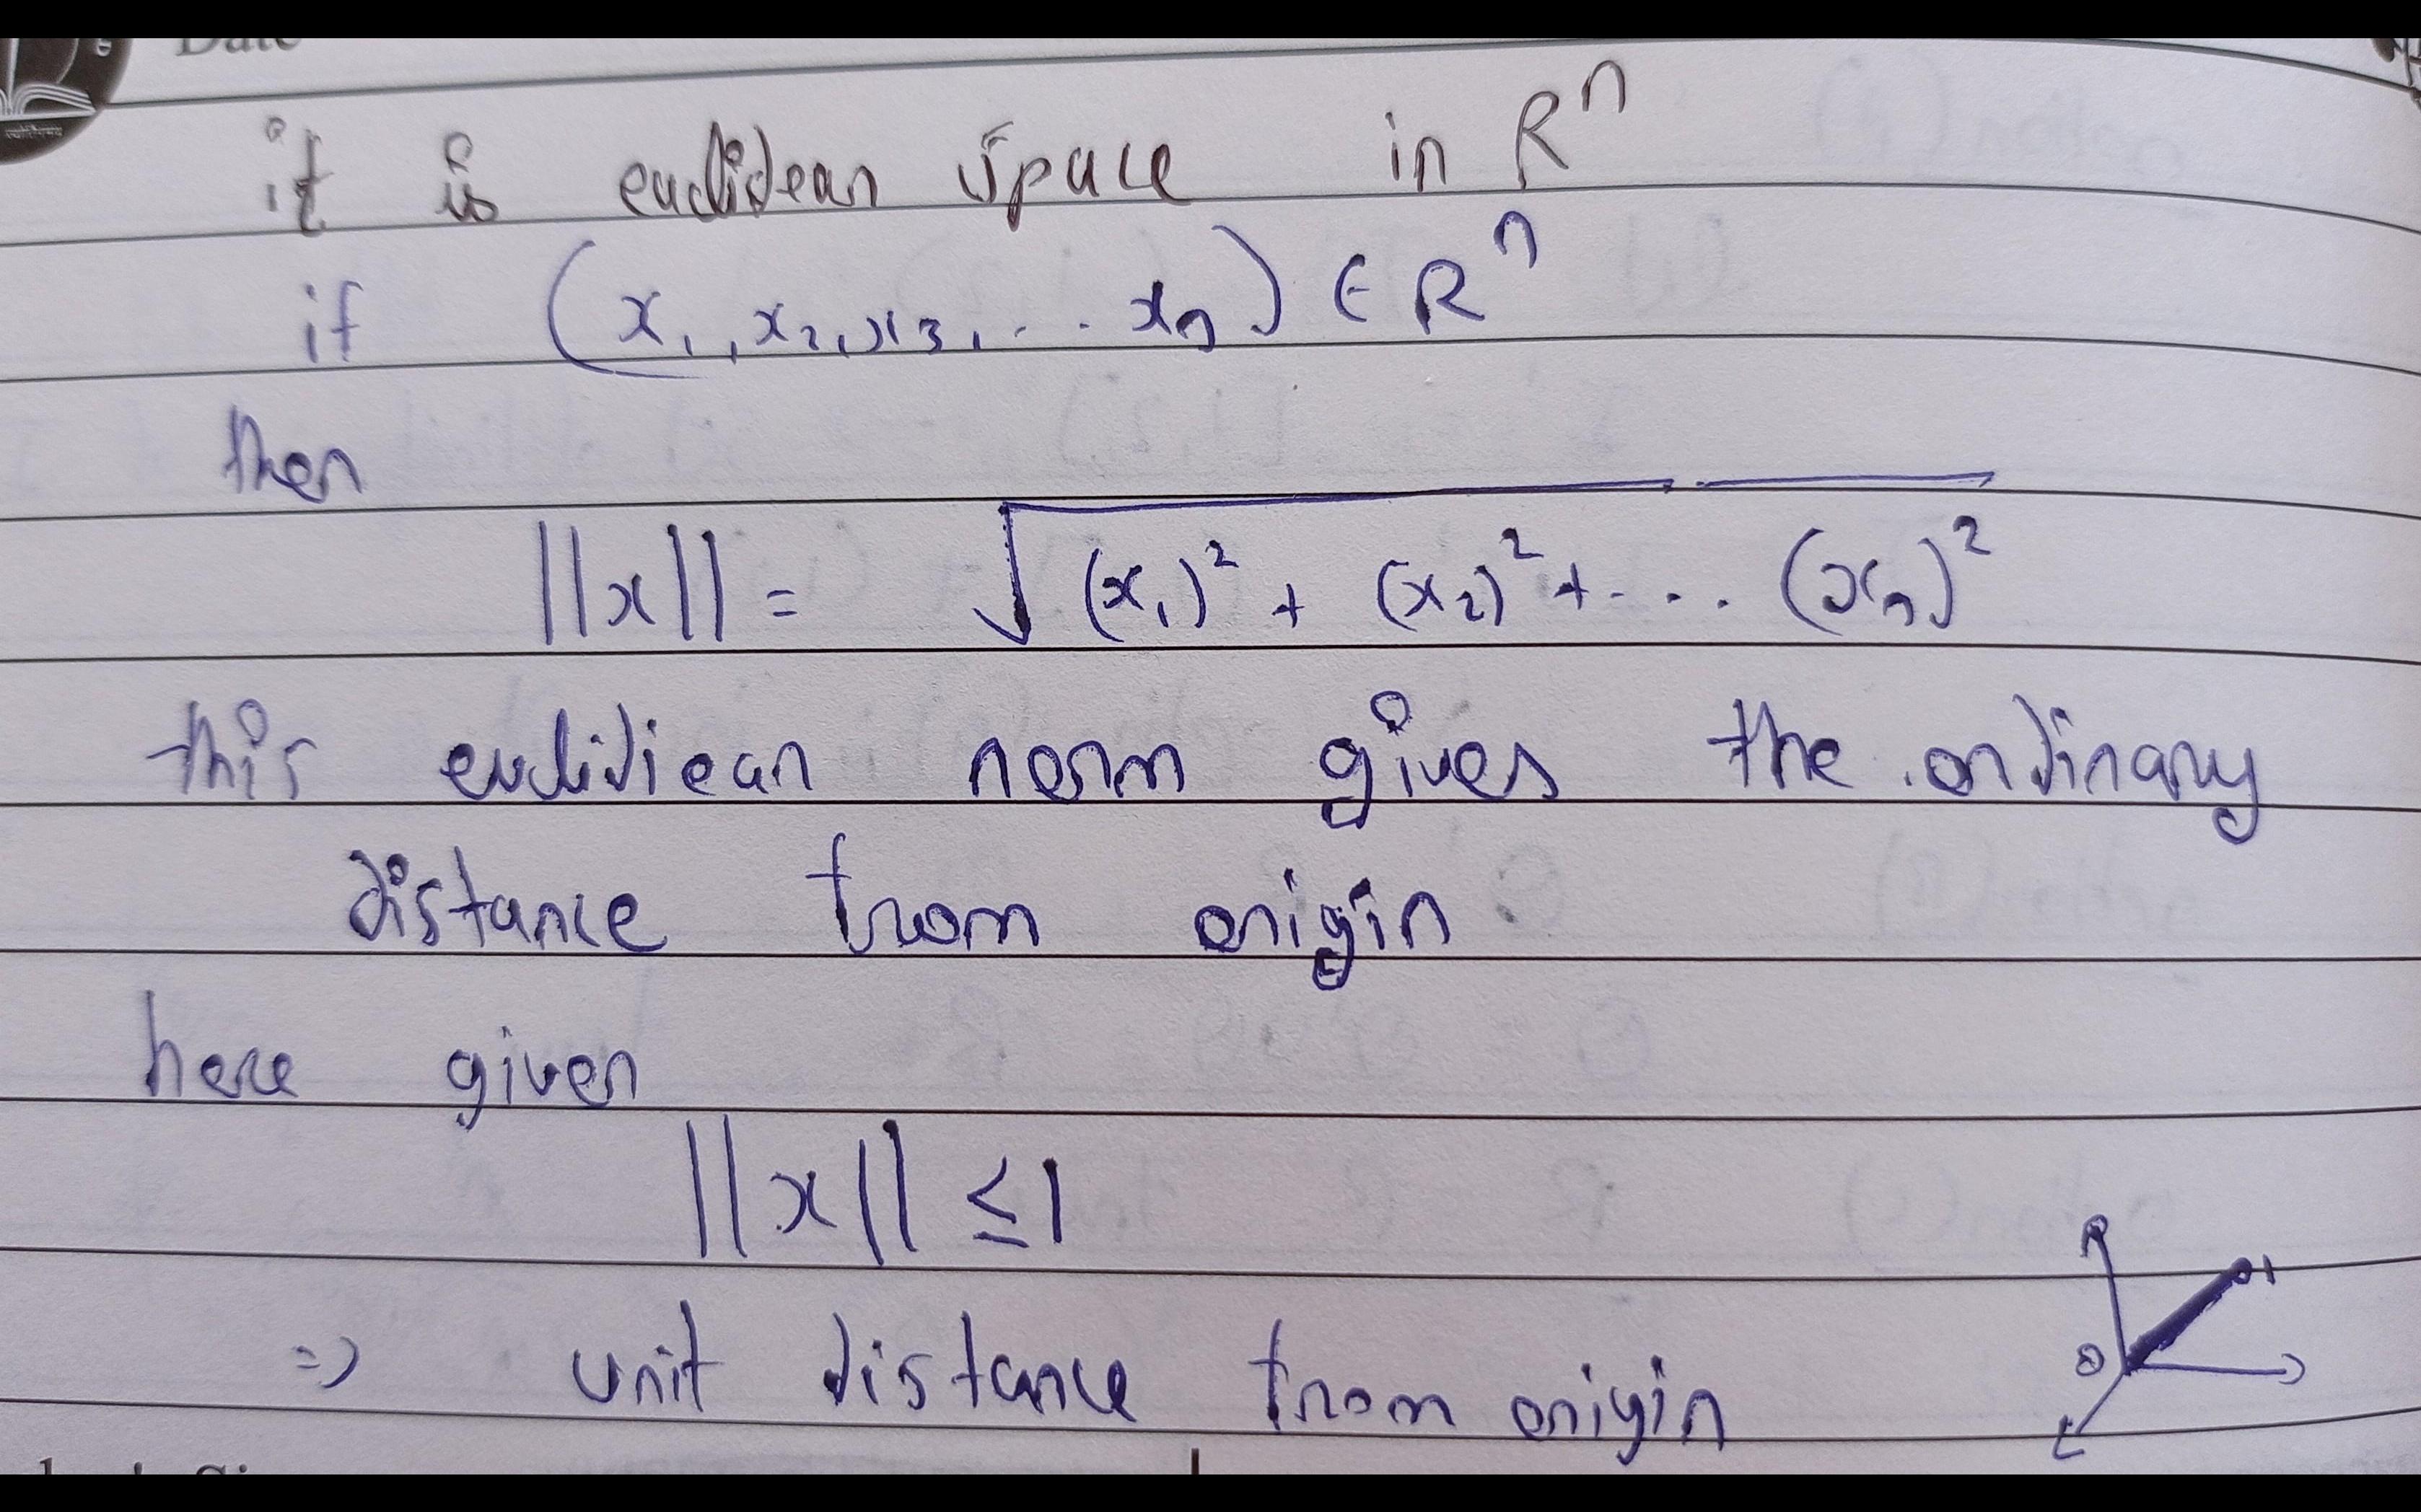 Date
it is euclidean space in R^n
if (x₁, x₂, x₃, . . . xₙ) ∈ R^n
then
||x|| = √(x₁)² + (x₂)² + . . . (xₙ)²
this euclidiean norm gives the ordinary
distance from origin
here given
||x|| ≤ 1
⇒ unit distance from origin
0 1